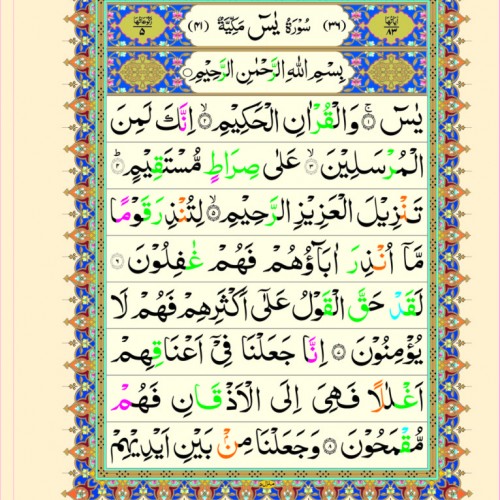 اٰیَاتُهَا ٨٣ (٣٦) سُوْرَةُ یٰسٓ مَكِّیَّةٌ (٤١) رُكُوْعَاتُهَا ٥
بِسْمِ اللّٰهِ الرَّحْمٰنِ الرَّحِیْمِ
یٰسٓ ۚ﴿١﴾ وَالْقُرْاٰنِ الْحَكِیْمِ ۙ﴿٢﴾ اِنَّكَ لَمِنَ
الْمُرْسَلِیْنَ ۙ﴿٣﴾ عَلٰی صِرَاطٍ مُّسْتَقِیْمٍ ؕ﴿٤﴾
تَنْزِیْلَ الْعَزِیْزِ الرَّحِیْمِ ۙ﴿٥﴾ لِتُنْذِرَ قَوْمًا
مَّاۤ اُنْذِرَ اٰبَآؤُهُمْ فَهُمْ غٰفِلُوْنَ ﴿٦﴾
لَقَدْ حَقَّ الْقَوْلُ عَلٰۤی اَكْثَرِهِمْ فَهُمْ لَا
یُؤْمِنُوْنَ ﴿٧﴾ اِنَّا جَعَلْنَا فِیْۤ اَعْنَاقِهِمْ
اَغْلٰلًا فَهِیَ اِلَی الْاَذْقَانِ فَهُمْ
مُّقْمَحُوْنَ ﴿٨﴾ وَجَعَلْنَا مِنْۢ بَیْنِ اَیْدِیْهِمْ